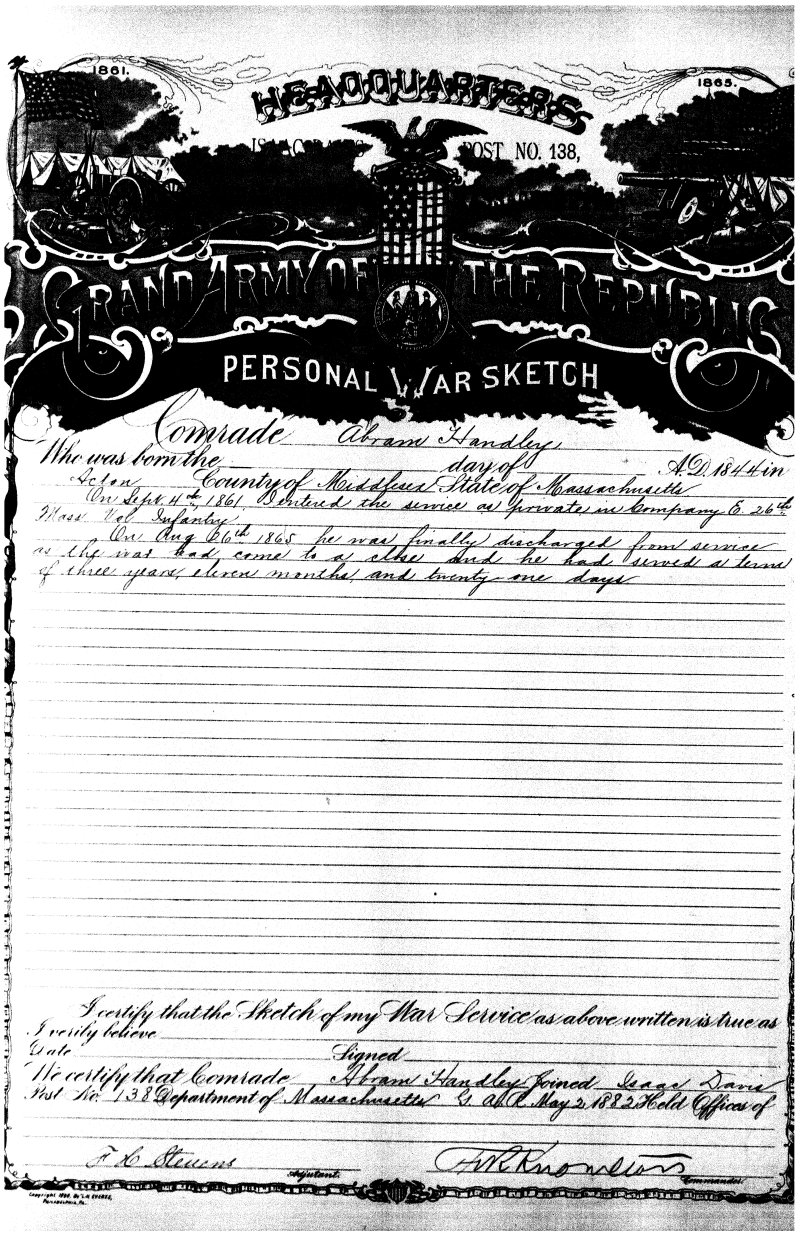 1861.
1865.
HEADQUARTERS
ISAAC DAVIS POST NO. 138,
GRAND ARMY OF THE REPUBLIC
PERSONAL WAR SKETCH
Comrade Abram Handley
Who was born the day of A.D. 1844 in
Acton County of Middlesex State of Massachusetts
On Sept. 4th, 1861 I entered the service as private in Company E. 26th
Mass. Vol. Infantry.
On Aug 26th 1865 he was finally discharged from service
as the war had come to a close and he had served a term
of three years, eleven months, and twenty-one days
I certify that the Sketch of my War Service as above written is true as
I verily believe
Date Signed
We certify that Comrade Abram Handley Joined Isaac Davis
Post No. 138 Department of Massachusetts G.A.R. May 2 1882 Held Offices of
F H Stevens
Adjutant.
Knowlton
Commander.
Philadelphia, Pa.